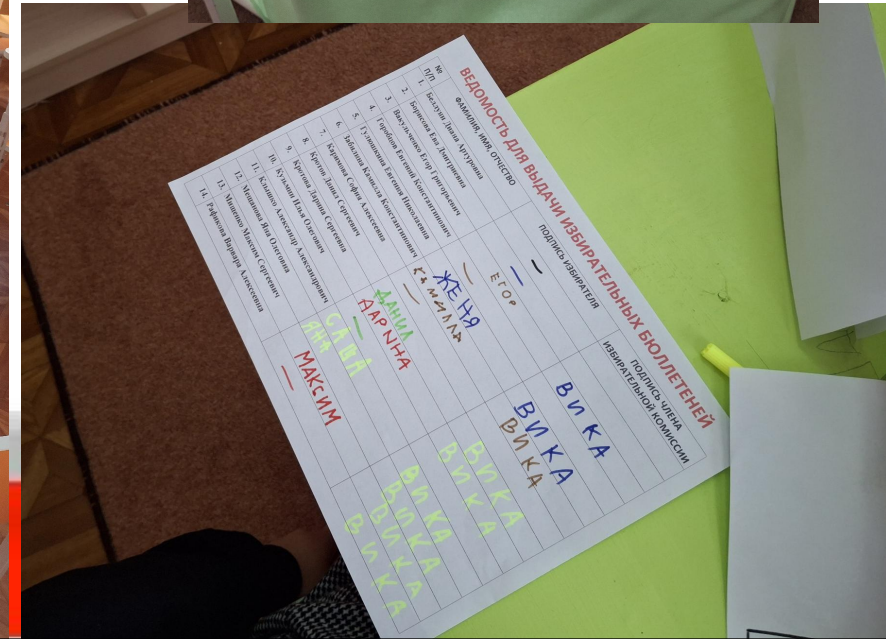 ВЕДОМОСТЬ ДЛЯ ВЫДАЧИ ИЗБИРАТЕЛЬНЫХ БЮЛЛЕТЕНЕЙ
№ П/П ФАМИЛИЯ, ИМЯ, ОТЧЕСТВО ПОДПИСЬ ИЗБИРАТЕЛЯ ПОДПИСЬ ЧЛЕНА
ИЗБИРАТЕЛЬНОЙ КОМИССИИ
1. Диана Артуровна —
2. Борисова Ева Дмитриевна —
3. Вакульченко Егор Григорьевич ЕГОР ВИКА
4. Горобцов Евгений Константинович —
5. Гулюшкина Евгения Николаевна ЖЕНЯ ВИКА
6. Забилина Камилла Константинович КАМИЛЛА ВИКА
7. Каримова София Алексеевна —
8. Кротов Данил Сергеевич ДАНИЛ ВИКА
9. Кротова Дарина Сергеевна ДАРИНА ВИКА
10. Кузьмин Илья Олегович —
11. Клышко Александр Александрович САША ВИКА
12. Мешанова Яна Олеговна ЯНА ВИКА
13. Мищенко Максим Сергеевич МАКСИМ ВИКА
14. Рафикова Варвара Алексеевна — ВИКА